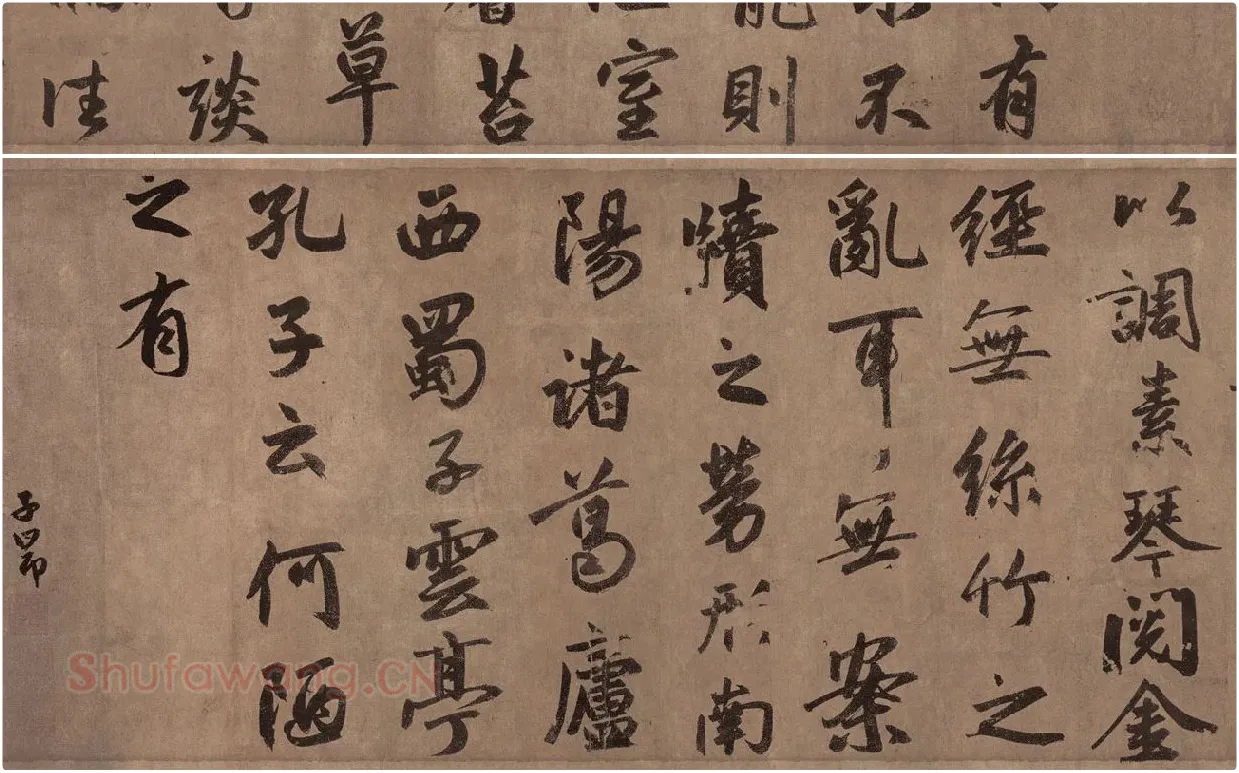 有
不
則
室
苔
草
談
往
以調素琴閱金
經無絲竹之
亂耳無案
牘之勞形南
陽諸葛廬
西蜀子雲亭
孔子云何陋
之有
子昂
Shufawang.CN